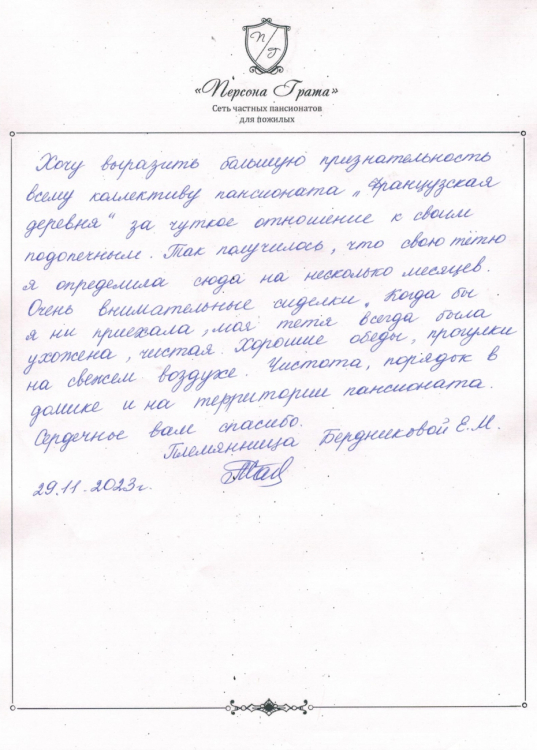 П Г
«Персона Грата»
Сеть частных пансионатов
для пожилых
Хочу выразить большую признательность
всему коллективу пансионата „Французская
деревня“ за чуткое отношение к своим
подопечным. Так получилось, что свою тётю
я определила сюда на несколько месяцев.
Очень внимательные сиделки. Когда бы
я ни приехала, моя тетя всегда была
ухожена, чистая. Хорошие обеды, прогулки
на свежем воздухе. Чистота, порядок в
домике и на территории пансионата.
Сердечное вам спасибо.
Племянница Бердниковой Е.М.
29.11.2023г.